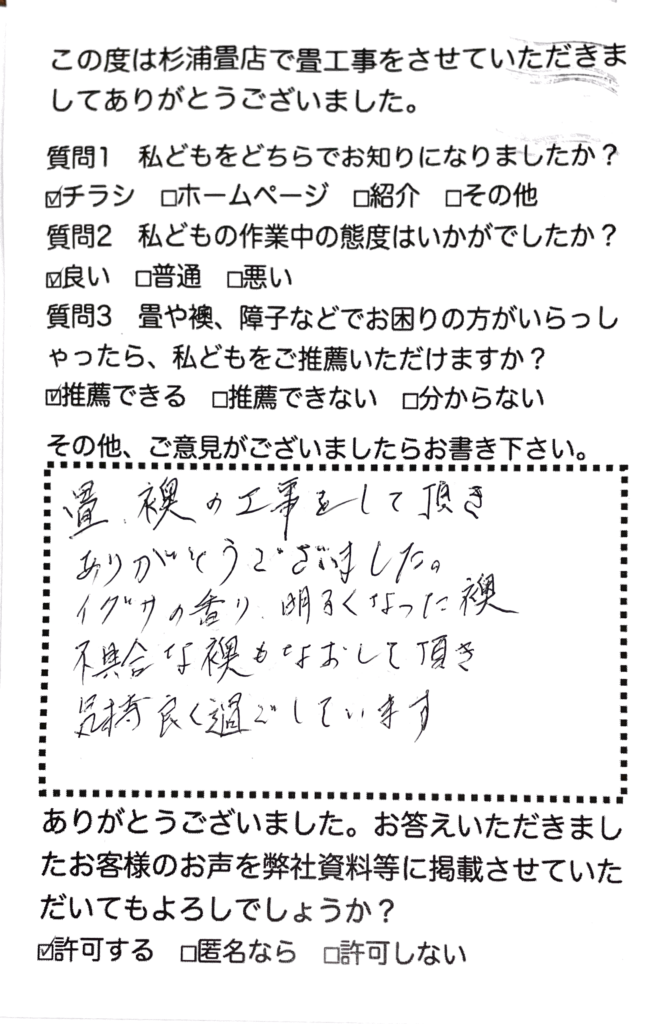 この度は杉浦畳店で畳工事をさせていただきま
してありがとうございました。
質問1 私どもをどちらでお知りになりましたか？
☑チラシ □ホームページ □紹介 □その他
質問2 私どもの作業中の態度はいかがでしたか？
☑良い □普通 □悪い
質問3 畳や襖、障子などでお困りの方がいらっし
ゃったら、私どもをご推薦いただけますか？
☑推薦できる □推薦できない □分からない
その他、ご意見がございましたらお書き下さい。
畳、襖の工事をして頂き
ありがとうございました。
イグサの香り、明るくなった襖
不具合な襖もなおして頂き
気持良く過ごしています
ありがとうございました。お答えいただきまし
たお客様のお声を弊社資料等に掲載させていた
だいてもよろしでしょうか？
☑許可する □匿名なら □許可しない